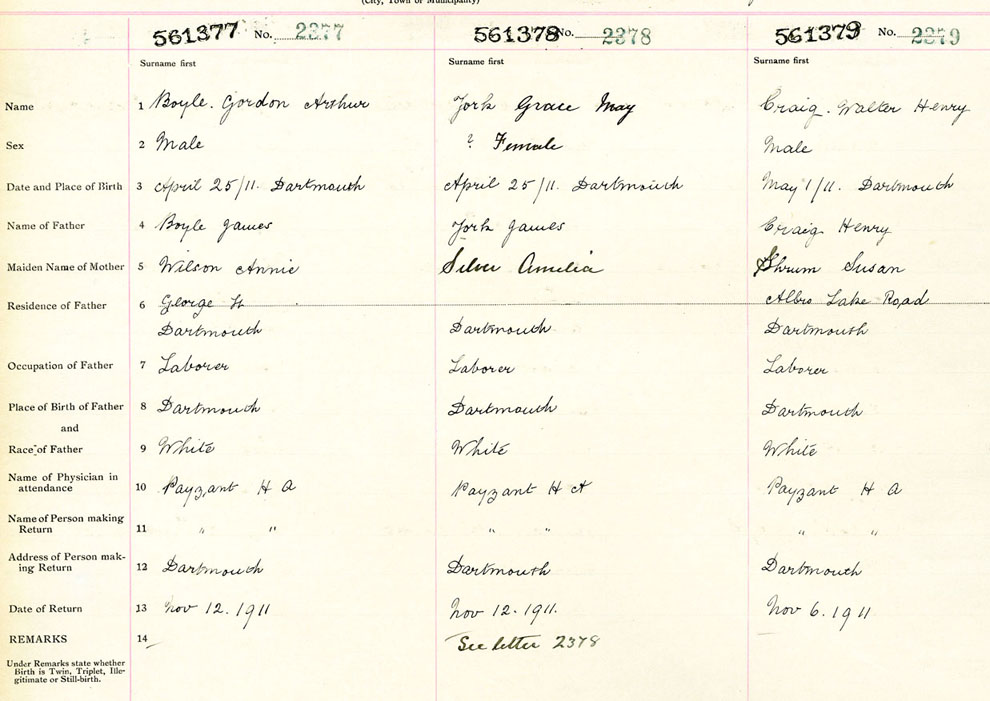 (City, Town or Municipality)
561377 No. 2377 561378 No. 2378 561379 No. 2379
Surname first Surname first Surname first
Name 1 Boyle. Gordon Arthur York Grace May Craig. Walter Henry
Sex 2 Male ? Female Male
Date and Place of Birth 3 April 25/11. Dartmouth April 25/11. Dartmouth May 1/11. Dartmouth
Name of Father 4 Boyle James York James Craig Henry
Maiden Name of Mother 5 Wilson Annie Silver Amelia Shrum Susan
Residence of Father 6 George St Albro Lake Road
Dartmouth Dartmouth Dartmouth
Occupation of Father 7 Laborer Laborer Laborer
Place of Birth of Father 8 Dartmouth Dartmouth Dartmouth
and
Race of Father 9 White White White
Name of Physician in
attendance 10 Payzant H A Payzant H A Payzant H A
Name of Person making
Return 11 " " " " " "
Address of Person mak-
ing Return 12 Dartmouth Dartmouth Dartmouth
Date of Return 13 Nov 12. 1911 Nov 12. 1911. Nov 6. 1911
REMARKS 14 See letter 2378
Under Remarks state whether
Birth is Twin, Triplet, Ille-
gitimate or Still-birth.